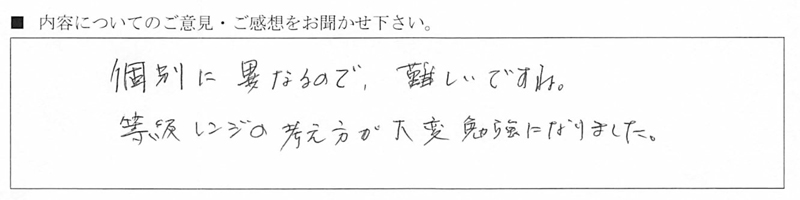 ■ 内容についてのご意見・ご感想をお聞かせ下さい。
個別に異なるので、難しいですね。
等級レンジの考え方が大変勉強になりました。